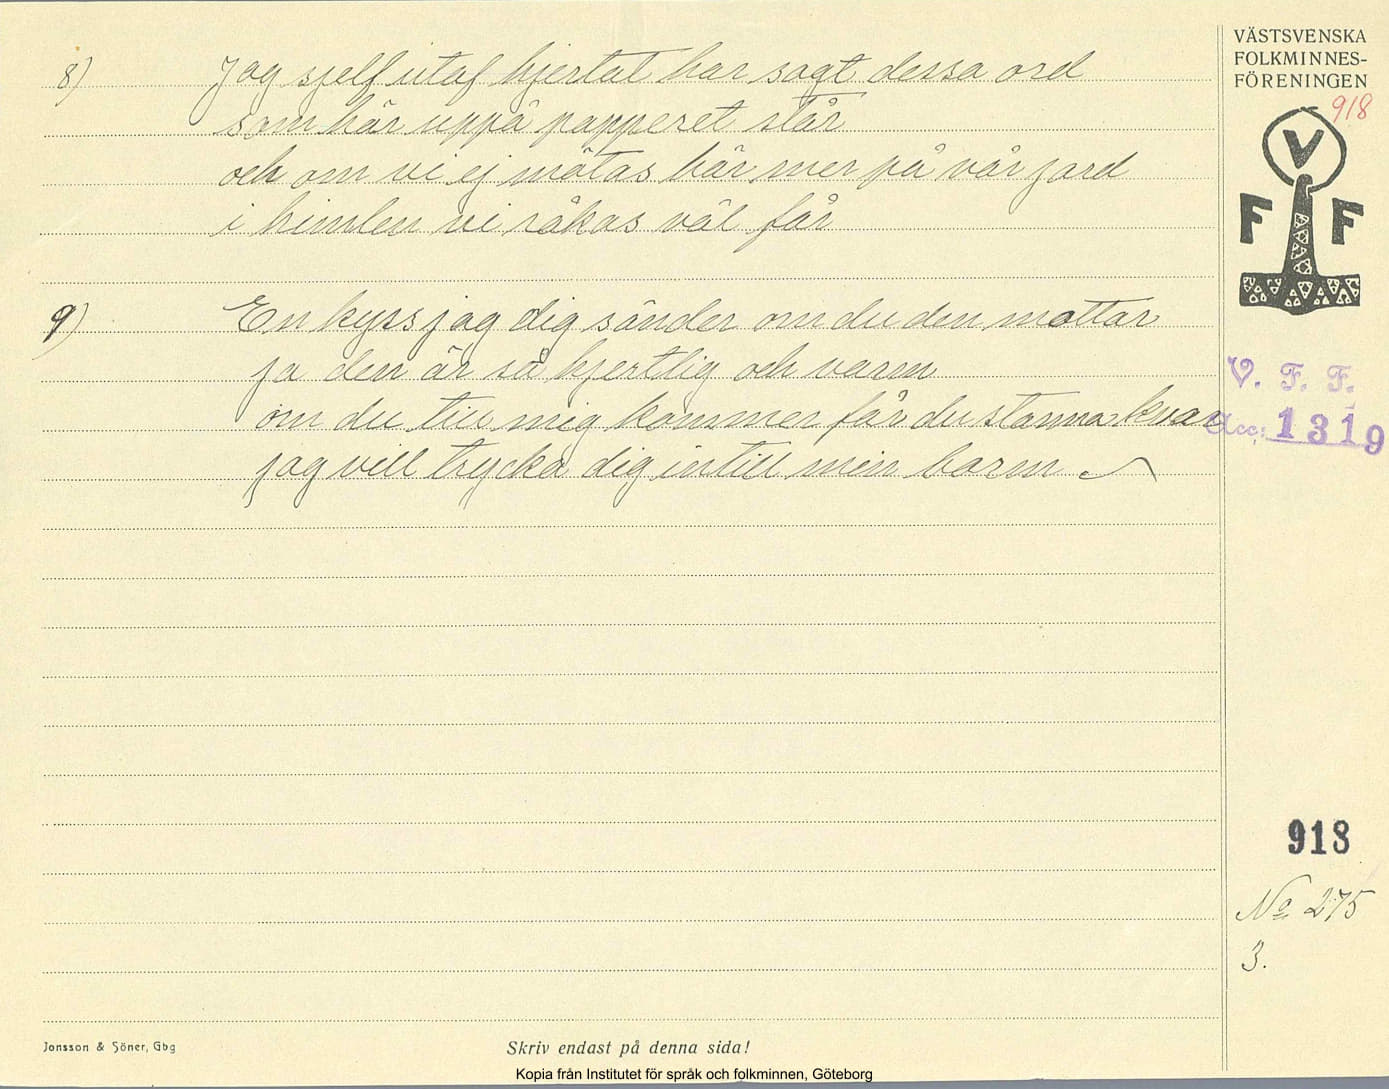 VÄSTSVENSKA
FOLKMINNES-
FÖRENINGEN
918
V
F F
8) Jag sjelf utaf hjertat har sagt dessa ord
som här uppå papperet står
och om vi ej mötas här mer på vår jord
i himlen vi råkas väl får
9) En kyss jag dig sänder om du den mottar
ja den är så hjertlig och varm
om du till mig kommer får du stanna kvar
jag vill trycka dig intill min barm
V. F. F.
Acc: 1319
918
No 275
3.
Jonsson & Söner, Gbg
Skriv endast på denna sida!
Kopia från Institutet för språk och folkminnen, Göteborg